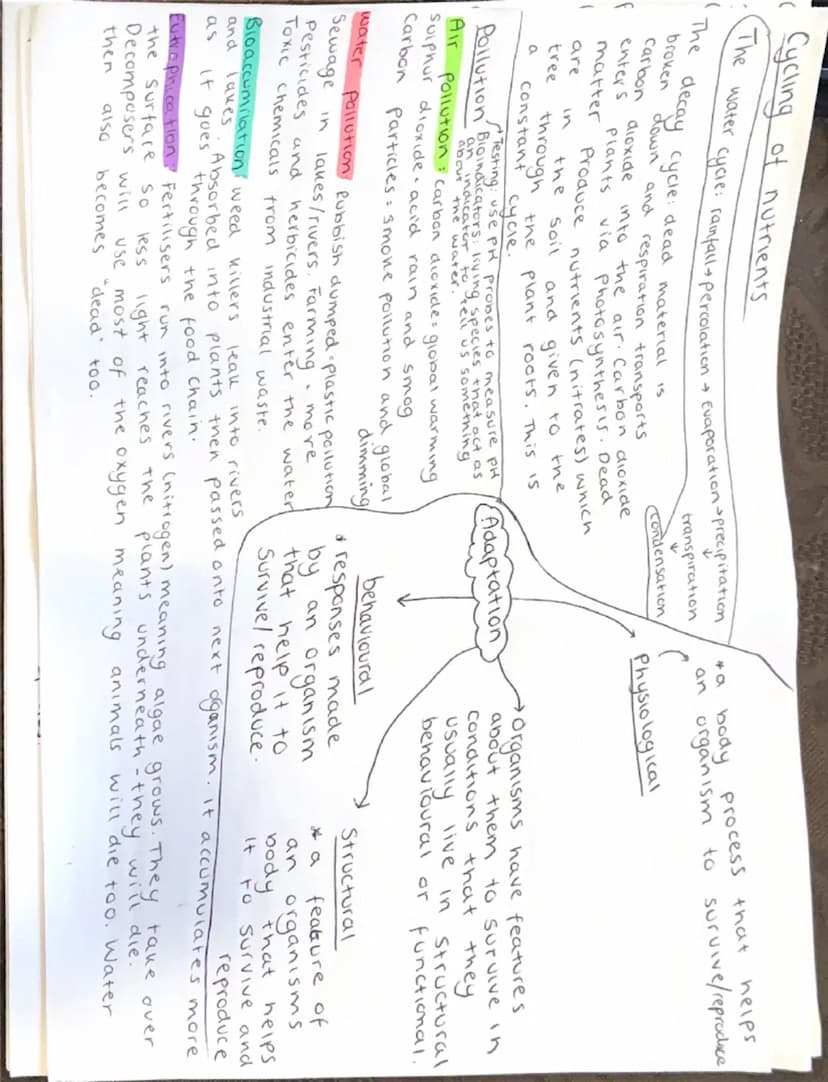 Cycling of nutrients
The water cycle: rainfall→percolation→Evaporation→precipitation
transpiration
condensation
The decay cycle: dead material is
broken down and respiration transports
carbon dioxide into the air. Carbon dioxide
enters plants via photosynthesis. Dead
matter produce nutrients (nitrates) which
are in the soil and given to the
tree through the plant roots. This is
a constant cycle.
Pollution
Testing: use pH probes to measure pH
Bioindicators: living species that act as
an indicator to tell us something
about the water.
Air pollution: Carbon dioxide = global warming
sulphur dioxide = acid rain and smog
Carbon particles = smoke pollution and global
dimming
Water pollution: Rubbish dumped = plastic pollution
Sewage in lakes/rivers. Farming - more
pesticides and herbicides enter the water
Toxic chemicals from industrial waste.
Bioaccumilation: weed killers leak into rivers
and lakes. Absorbed into plants then passed onto next oganism. It accumulates more
as it goes through the food chain.
Eutrophication: Fertilisers run into rivers (nitrogen) meaning algae grows. They take over
the surface so less light reaches the plants underneath - they will die.
Decomposers will use most of the oxygen meaning animals will die too. Water
then also becomes "dead" too.
Adaptation
Physiological
*a body process that helps
an organism to survive/reproduce
Organisms have features
about them to survive in
conditions that they
usually live in structural
behavioural or functional.
behavioural
*responses made
by an organism
that help it to
survive/reproduce.
Structural
*a feature of
an organisms
body that helps
it to survive and
reproduce